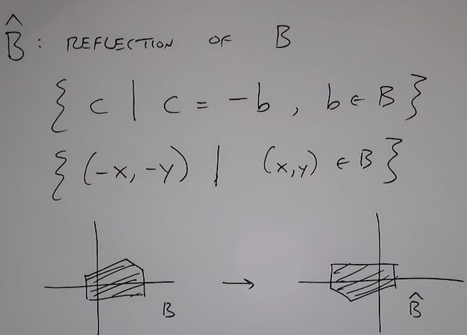 B̂ : REFLECTION OF B
{ c | c = -b , b ∈ B }
{ (-x, -y) | (x,y) ∈ B }
B → B̂